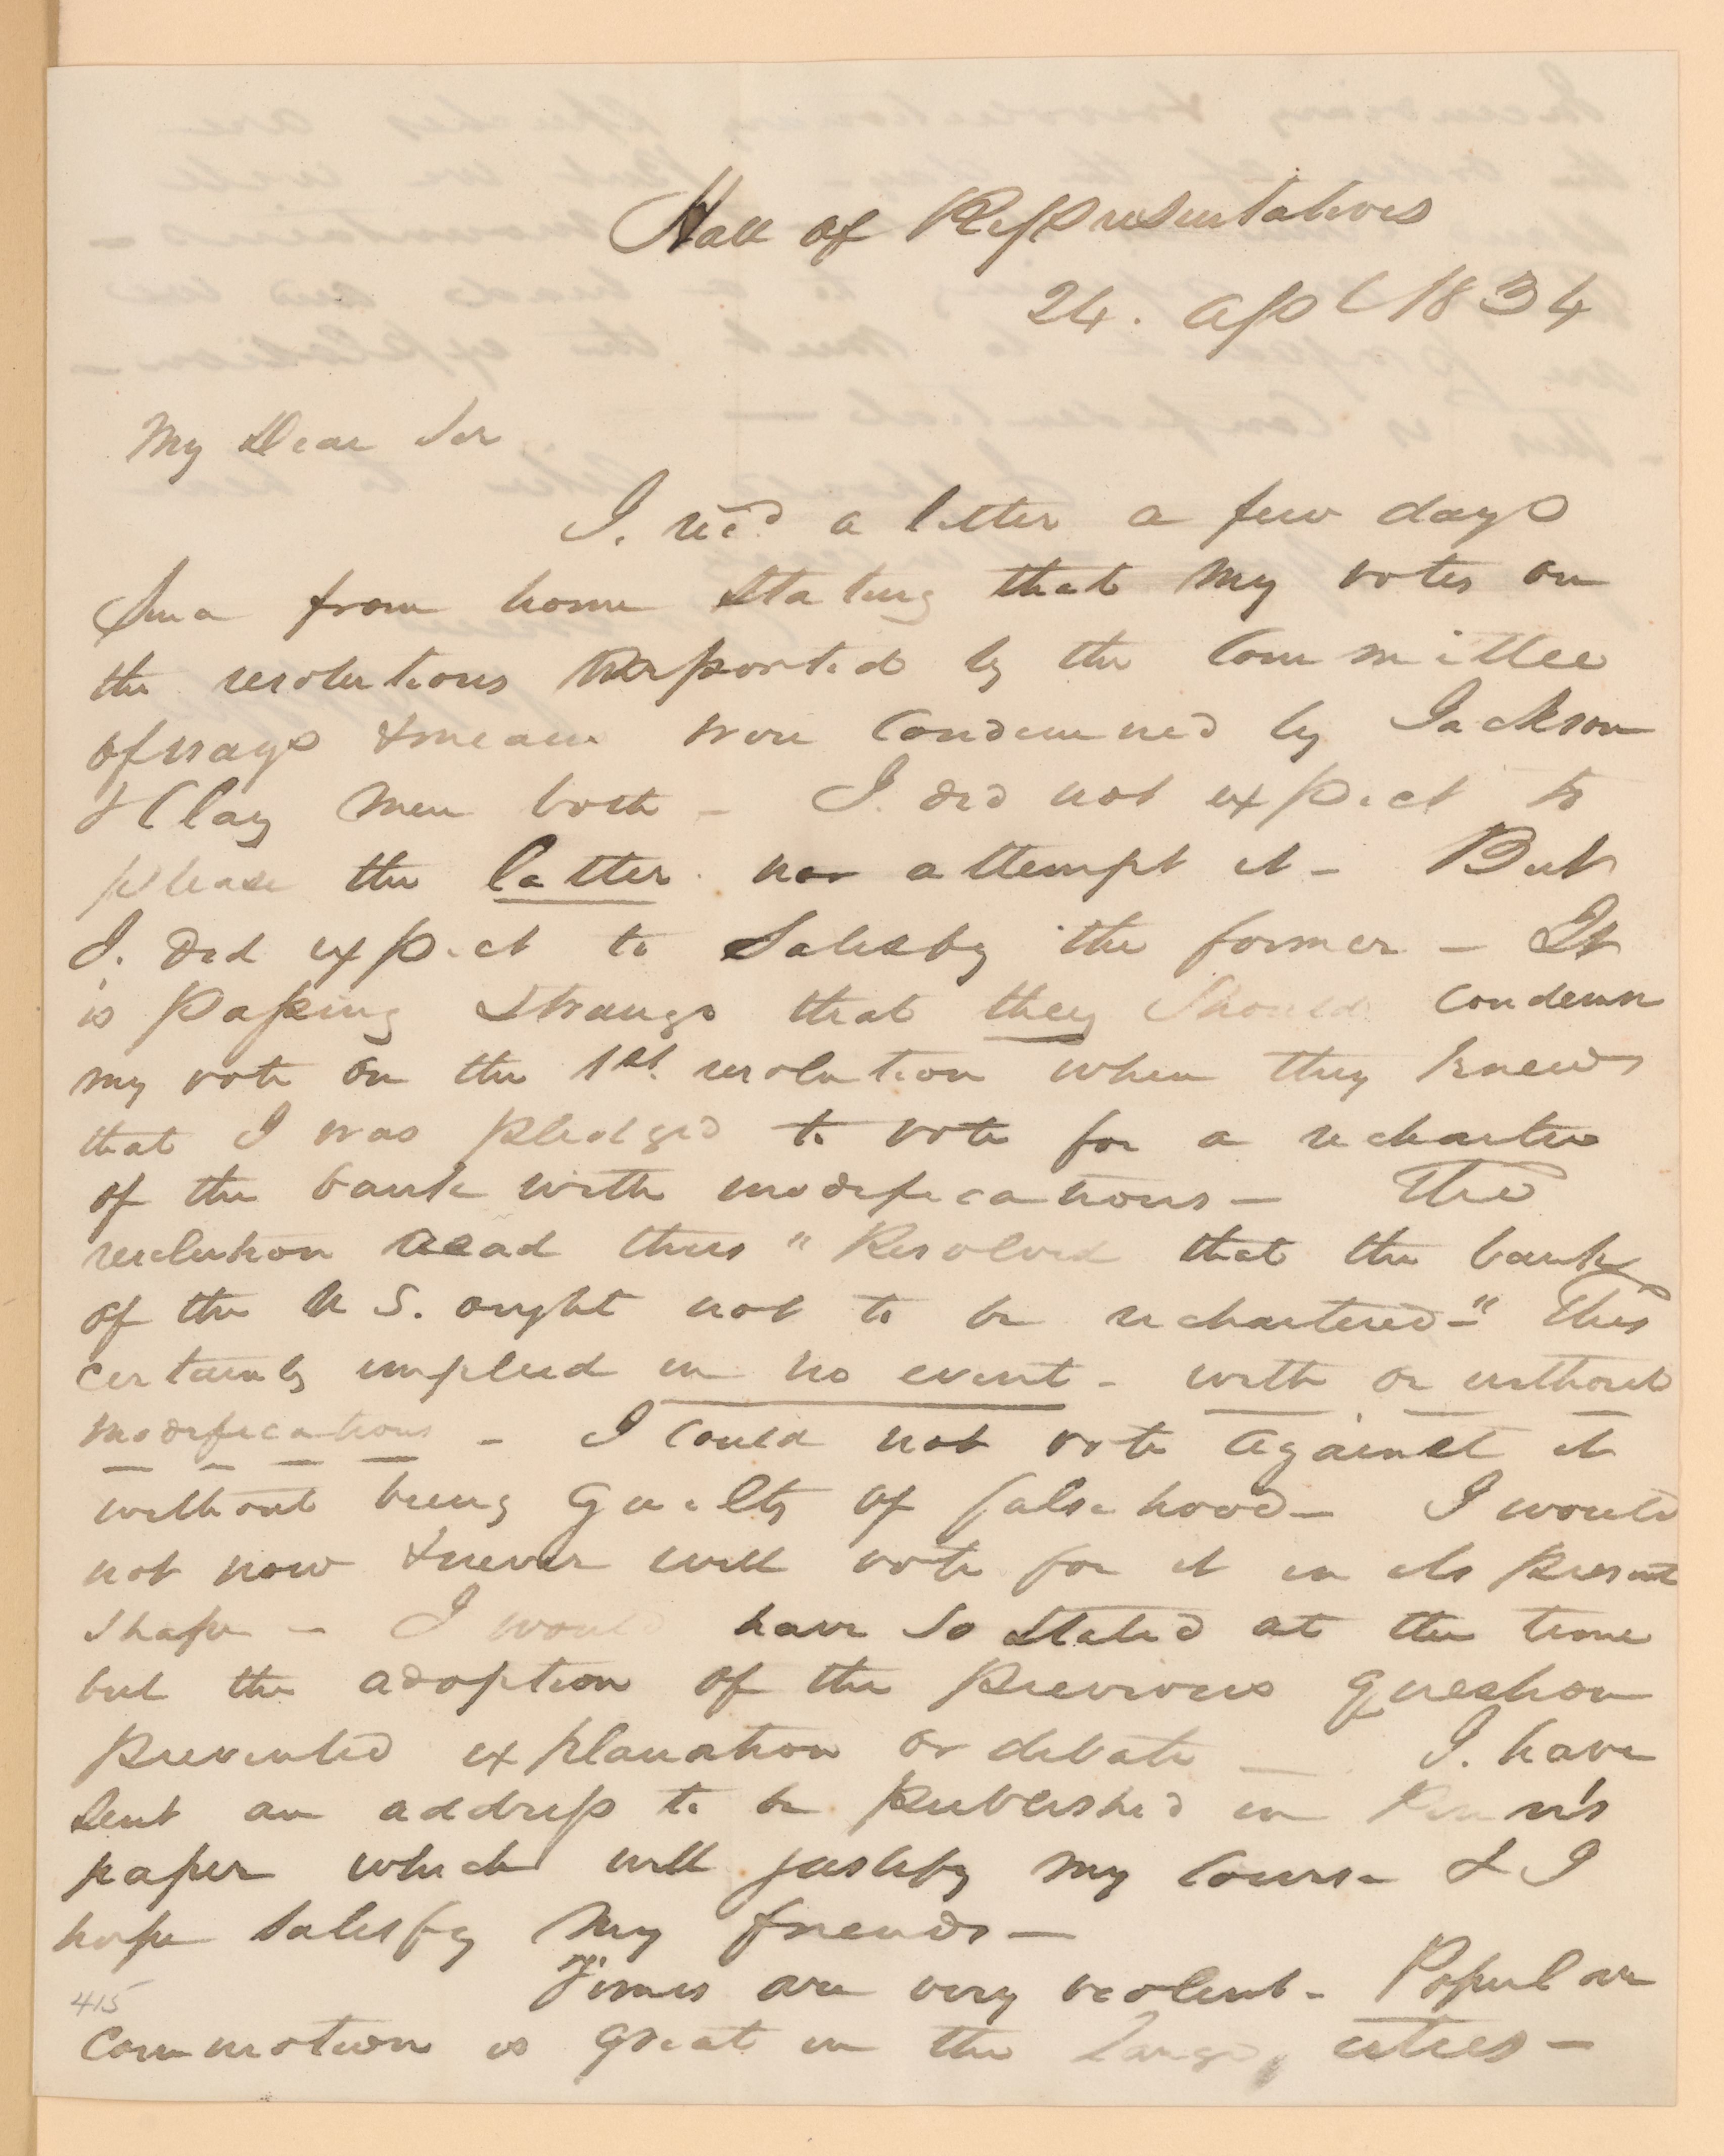 Hall of Representatives
24. Apl 1834
My Dear Sir
I. rec'd a letter a few days
since from home stating that my votes on
the resolutions reported by the Committee
of ways & means were Condemned by Jackson
& Clay men both - I. did not expect to
please the latter. nor attempt it - But
I. did expect to Satisfy the former - It
is passing strange that they should condemn
my vote on the 1st. resolution when they knew
that I was pledged to vote for a recharter
of the bank with modifications - The
resolution read thus "Resolved that the bank
of the U S. ought not to be rechartered -" This
certainly implied in no event - with or without
modifications - I could not vote against it
without being guilty of falsehood - I would
not now & never will vote for it in its present
shape - I would have so stated at the time
but the adoption of the previous question
prevented explanation or debate - I. have
sent an address to be published in Penn's
paper which will justify my course & I
hope satisfy my friends -
Times are very violent - Popular
415
Commotion is great in the large cities -